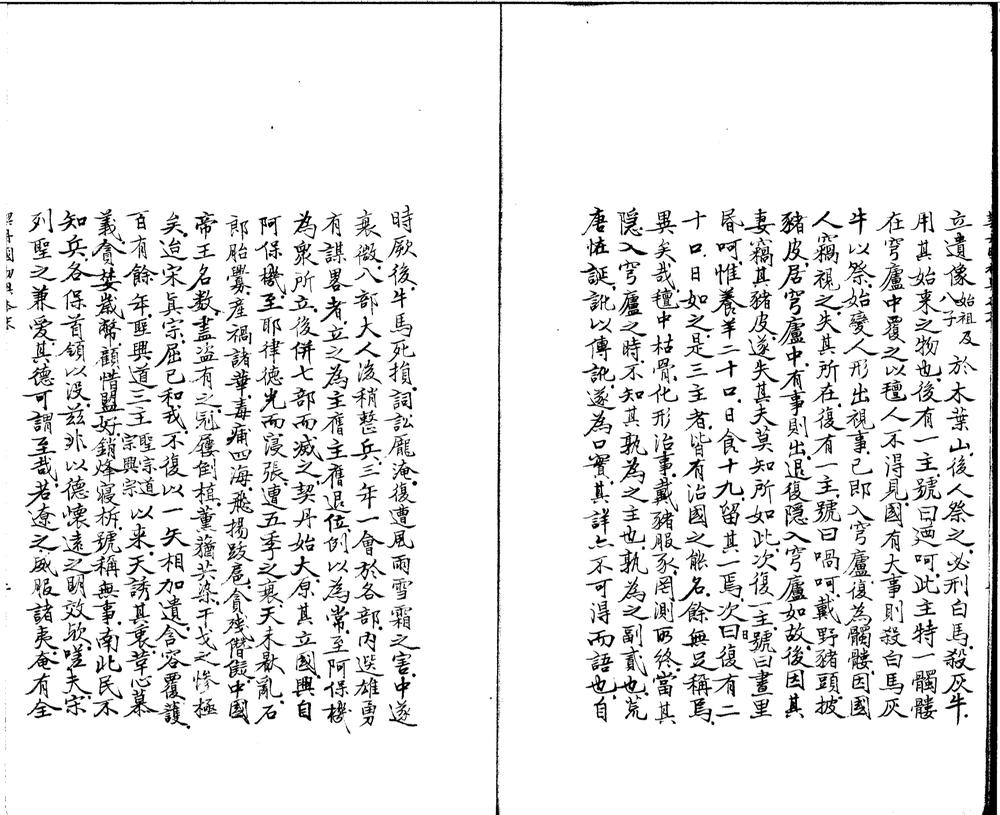 立遺像始祖及八子於木葉山後人祭之必刑白馬殺灰牛
用其始來之物也後有一主號曰廼呵此主特一髑髏
在穹廬中覆之以氊人不得見國有大事則殺白馬灰
牛以祭始變人形出視事已即入穹廬復為髑髏因國
人竊視之失其所在復有一主號曰喎呵戴野豬頭披
豬皮居穹廬中有事則出退復隱入穹廬如故後因其
妻竊其豬皮遂失其夫莫知所如此次復一主號曰晝里
昏呵惟養羊二十口日食十九留其一焉次日復有二
十口日如之是三主者皆有治國之能名餘無足稱焉
異矣哉氊中枯骨化形治事戴豬服豕罔測所終當其
隱入穹廬之時不知其孰為之主也孰為之副貳也荒
唐怪誕訛以傳訛遂為口實其詳亦不可得而語也自
時厥後牛馬死損詞訟龐淹復遭風雨雪霜之害中遂
衰微八部大人後稍整兵三年一會於各部內選雄勇
有謀畧者立之為主舊主退位例以為常至阿保機
為衆所立後併七部而滅之契丹始大原其立國興自
阿保機至耶律德光而寖張遭五季之衰天未厭亂石
郎胎釁產禍諸華毒痡四海飛揚跋扈貪殘僭擬中國
帝王名數盡盜有之冠屨倒植薰蕕共染干戈之慘極
矣迨宋真宗屈已和戎不復以一矢相加遺含容覆護
百有餘年聖興道三主聖宗道宗興宗以來天誘其衷革心慕
義貪婪歲幣顧惜盟好銷烽寢柝號稱無事南此民不
知兵各保首領以没茲非以德懷遠之明效歟嗟夫宋
列聖之兼愛其德可謂至哉若遼之威服諸夷奄有全